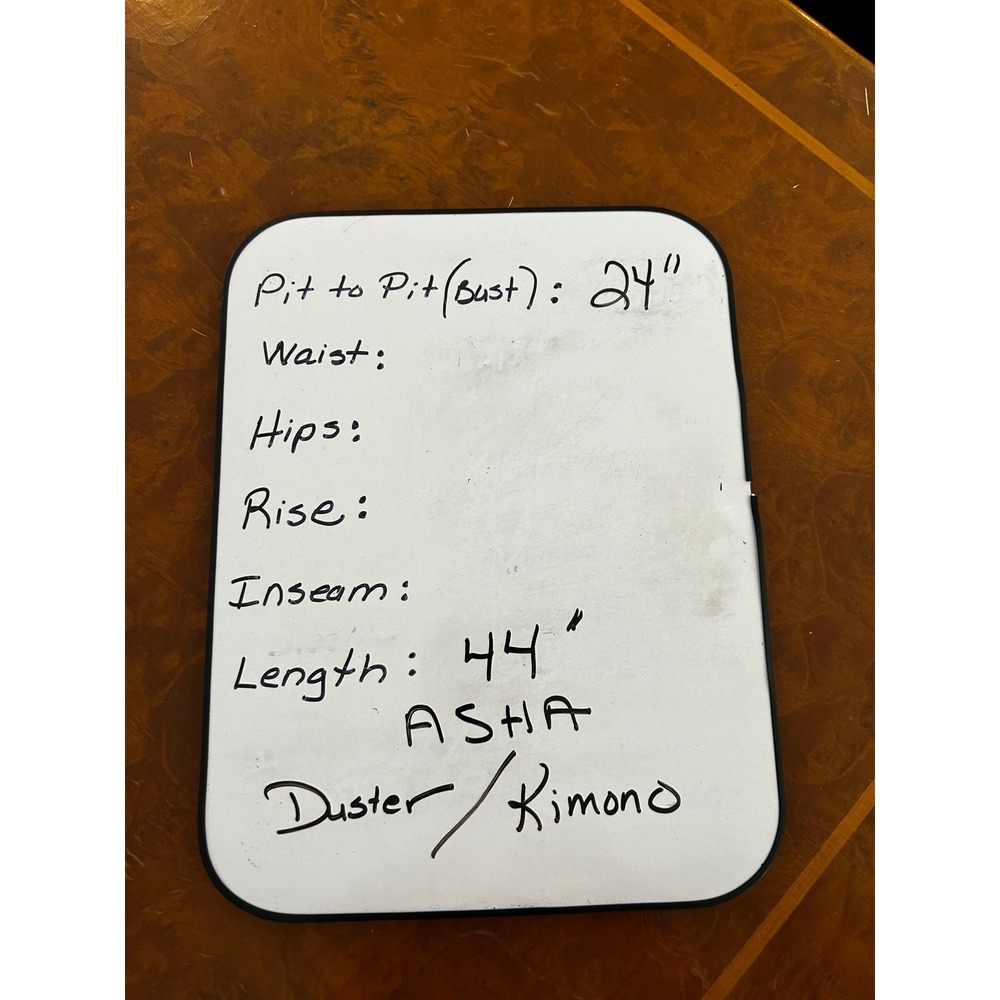 Pit to Pit (Bust): 24"
Waist:
Hips:
Rise:
Inseam:
Length: 44"
ASHA
Duster / Kimono